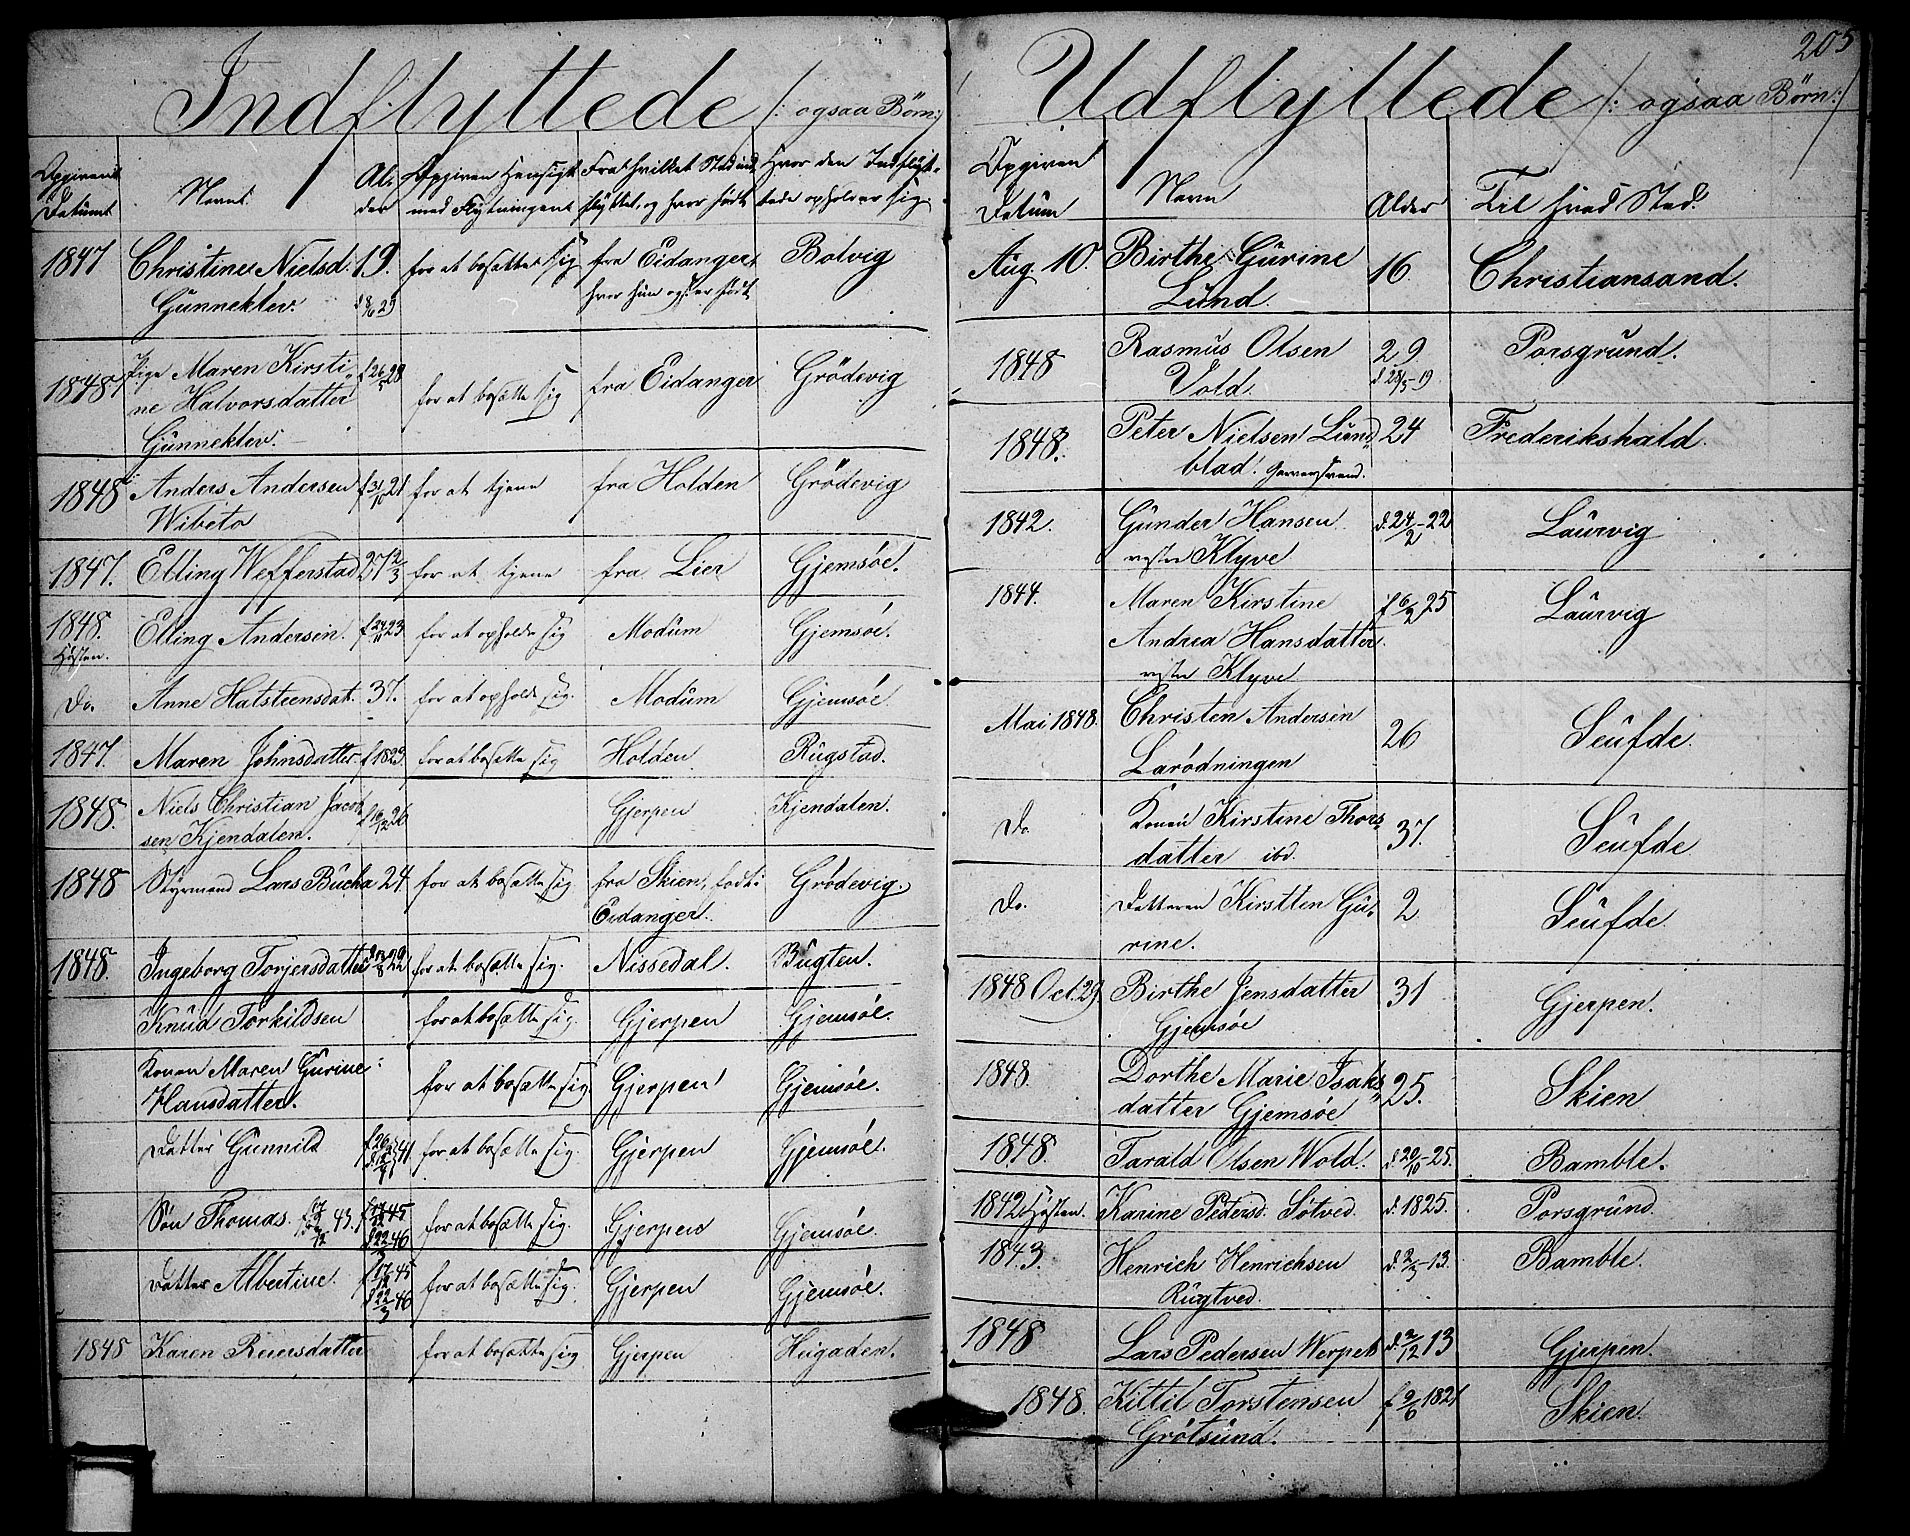 Indflyttede /: ogsaa Børn :/
Opgivent Datumt | Navnt | Alder | Opgiven Hensigt med Flytningent | Fra hvilket Sted indflyttet, og hvor født | Hvor den Indflyttede opholder sig.
1847 | Christine Nielsd: | 19. | for at bosætte sig | fra Eidanger, | Bolvig
Gunneklev. | hvor hun og er født
1848 | Pige Maren Kirsti- | f 26/5 28 | for at bosætte sig | fra Eidanger | Grödevig
ne Halvorsdatter
Gunneklev.
1848 | Anders Andersen | f 31/10 21 | for at tjene | fra Holden | Grödevig
Wibeto
1847. | Elling Wefferstad | 27 2/3 | for at tjene | fra Lier | Gjemsøe.
1848. | Elling Andersen. | 23 | for at opholde sig | Modum | Gjemsøe.
Høsten.
Do. | Anne Halsteensdat. | 37. | for at opholde sig. | Modum | Gjemsøe
1847. | Maren Johnsdatter | f 1823. | for at bosætte sig | Holden | Rugstad.
1848. | Niels Christian Jacob | f 16/12 26 | Gjerpen | Kjendalen.
sen Kjendalen.
1848 | Styrmand Lars Bucha | 24 | for at bosætte sig. | fra Skien, født i | Grødevig.
Eidanger.
1848. | Ingeborg Torjersdatter | for at bosætte sig. | Nissedal. | Bugten.
Knud Torkildsen | for at bosætte sig. | Gjerpen | Gjemsøe.
Konen Maren Gurine | for at bosætte sig | Gjerpen | Gjemsøe.
Hansdatter.
Datter Gunnild | 41 | for at bosætte sig. | Gjerpen | Gjemsøe.
Søn Thomas. 43. | f 17/12 45 d 22/3 46 | for at bosætte sig. | Gjerpen | Gjemsøe.
Datter Albertine. | f 17/12 45 d 22/3 46 | for at bosætte sig. | Gjerpen | Gjemsøe.
1848 | Karen Reiersdatter | for at bosætte sig | Gjerpen | Hugaden.
205
Udflyttede /: ogsaa Børn :/
Opgiven Datum | Navn | Alder | Til hvad Sted.
Aug. 10. | Birthe Gurine | 16 | Christiansand.
Lund.
1848 | Rasmus Olsen | 29 | Porsgrund.
Vold. | d. 28/5-19.
1848. | Peter Nielsen Lund | 24 | Frederikshald
blad. Garversvend.
1842. | Gunder Hansen | d. 24/2-22 | Laurvig
vestre Klyve
1844. | Maren Kirstine | f 6/2 25 | Laurvig
Andrea Hansdatter
vestre Klyve
Mai 1848. | Christen Andersen | 26 | Seufde.
Larødningen
Do. | Konen Kirstine Thors | 37. | Seufde
datter ibd.
Do. | Datteren Kirstten Gu- | 2 | Seufde
rine.
1848 Oct. 29 | Birthe Jensdatter | 31 | Gjerpen.
Gjemsøe
1848. | Dorthe Marie Isaks | 25. | Skien
datter Gjemsøe
1848. | Tarald Olsen Wold. | d. 20/10-25. | Bamble.
1842 Høsten. | Karine Pedersd. Søtved. | d. 1825. | Porsgrund.
1843. | Henrich Henrichsen | d. 2/3-13. | Bamble.
Rugtved.
1848 | Lars Pedersen Werpet | d. 2/12 13 | Gjerpen.
1848. | Kittil Torstensen | f 9/6 1821 | Skien.
Grøtsund.